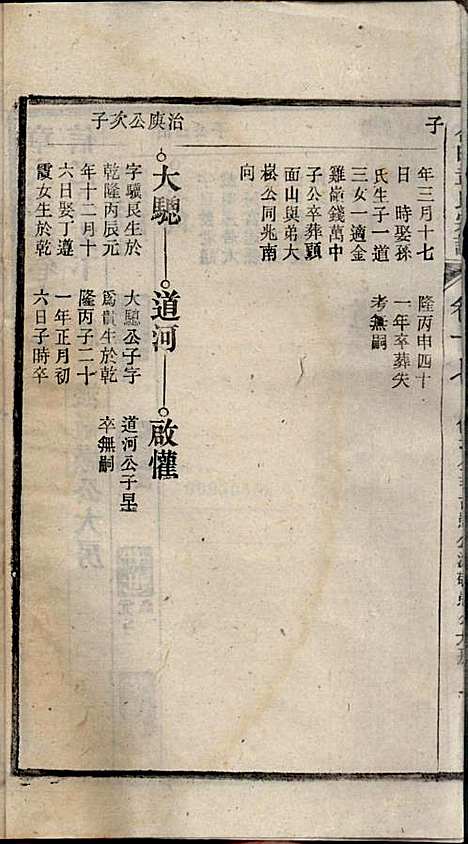 子
年三月十七
日　時娶孫
氏生子一道
三女一適金
雞嶺錢萬中
子公卒葬頴
面山與弟大
崧公同兆南
向
隆丙申四十
一年卒葬失
考無嗣
治庚公次子
大驄
字驥民生於
乾隆丙辰元
年十二月十
六日娶丁遵
霞女生於乾
道河
大驄公子字
爲貴生於乾
隆丙子二十
一年正月初
六日子時卒
啟懽
道河公子早
卒無嗣